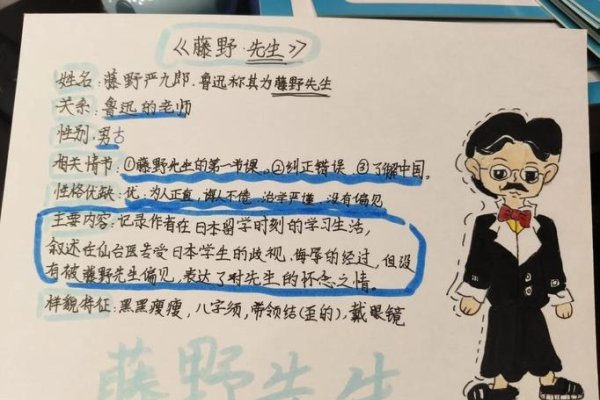 《藤野先生》
姓名：藤野严九郎.鲁迅称其为藤野先生
关系：鲁迅的老师
性别：男古
相关情节：①藤野先生的第一节课。②纠正错误 ③了解中国。
性格优缺：优：为人正直，诲人不倦，治学严谨，没有偏见
主要内容：记录作者在日本留学时刻的学习生活，
叙述在仙台医专受日本学生的歧视、侮辱的经过，但没
有被藤野先生偏见，表达了对先生的怀念之情。
样貌特征：黑黑瘦瘦，八字须，带领结(歪的)，戴眼镜
藤野先生